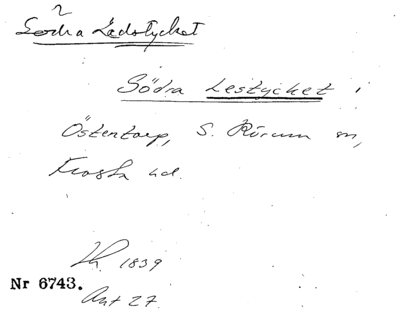 Södra Ledstycket
Södra Lestycket i
Östentorp, S. Rörum sn,
Frosta hd.
Lh. 1839
Nr 6743.
Akt 27